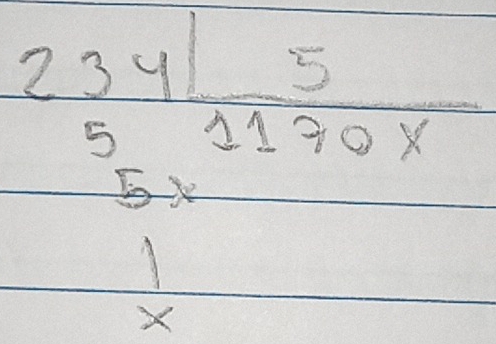 234 5
5 1170x
5x
1
x